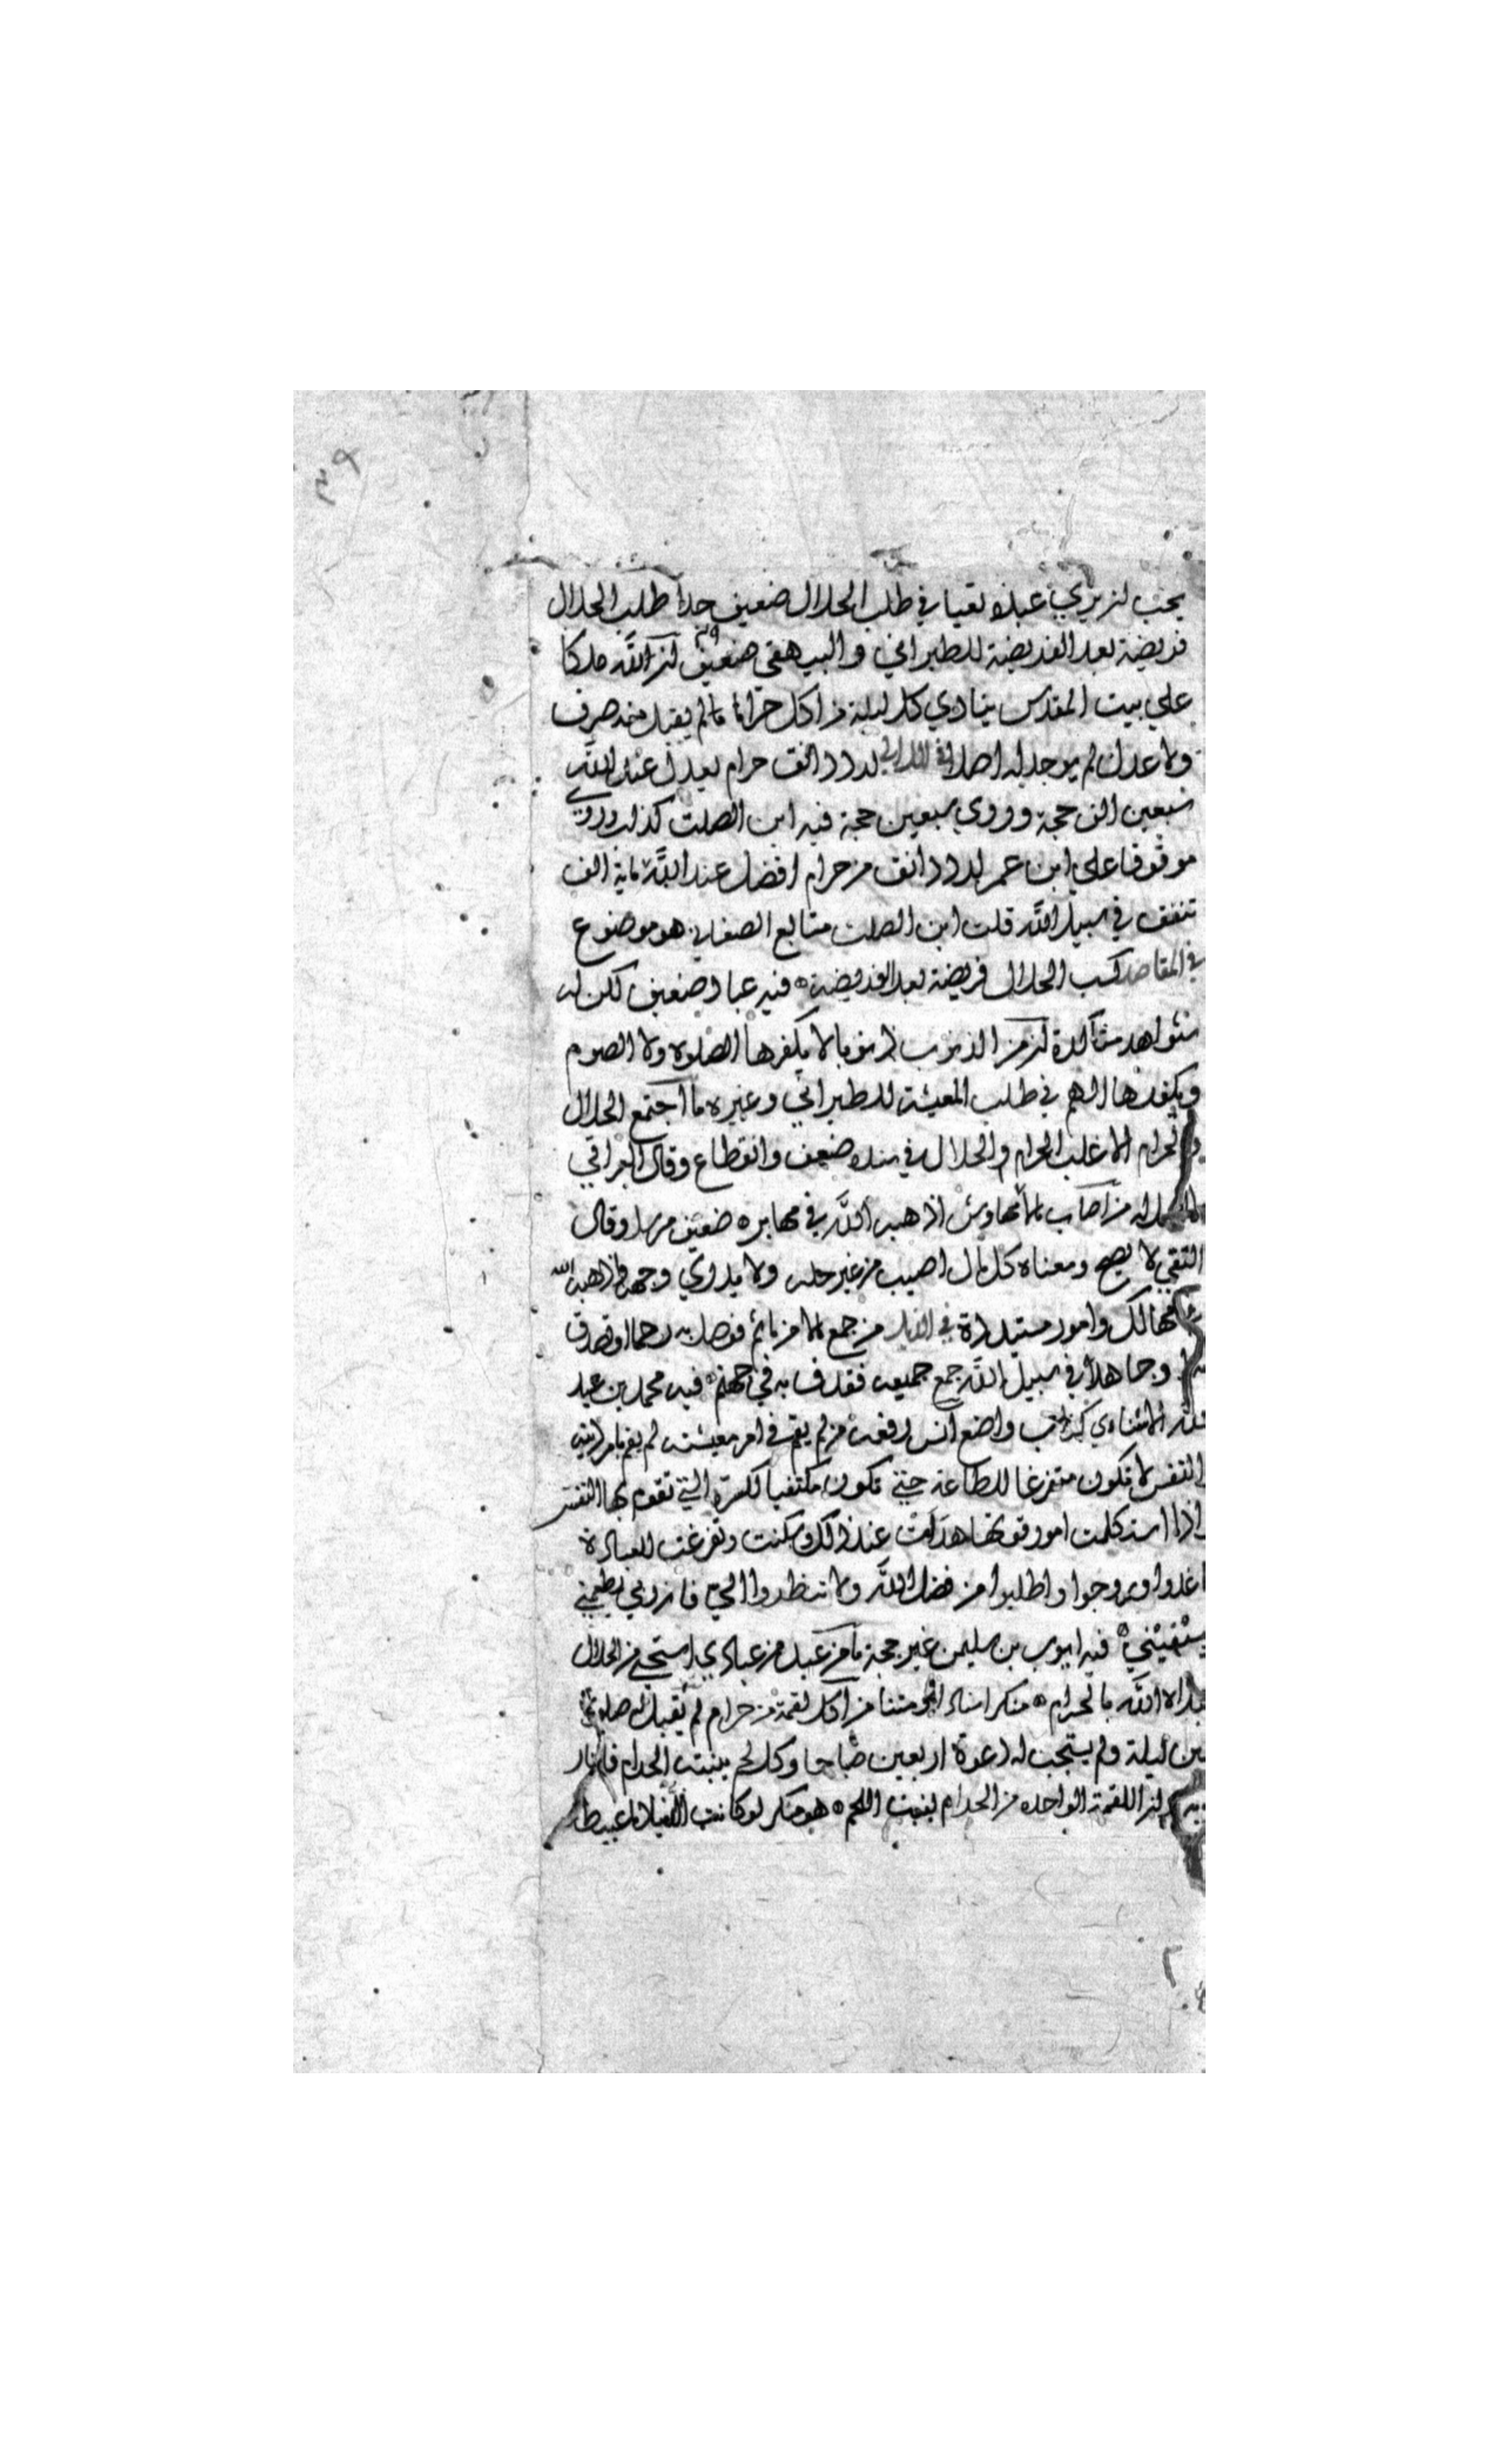 يحب ان يري عبده تعبا في طلب الحلال ضعيف جدا طلب الحلال
فريضة بعد الفريضة للطبراني والبيهقي ضعيف ان لله ملكا
علي بيت المقدس ينادي كل ليلة من اكل حراما لم يقبل منه صرف
ولا عدل لم يوجد له اصل لرد دانق حرام يعدل عند الله
سبعين الف حجة وروي سبعين حجة فيه ابن الصلت كذاب وروي
موقوفا علي ابن عمر لرد دانق من حرام افضل عند الله مائة الف
تنفق في سبيل الله قلت ابن الصلت متابع الصغاني هو موضوع
في المقاصد كسب الحلال فريضة بعد الفريضة فيه عباد ضعيف لكن له
شواهد متأكدة ان من الذنوب ذنوبا لا يكفرها الصلوة ولا الصوم
ويكفرها الهم في طلب المعيشة للطبراني وغيره ما اجتمع الحلال
والحرام الا غلب الحرام الحلال في سنده ضعف وانقطاع وقال العراقي
لا اصل له من اصاب مالا من مهاوش اذهبه الله في نهابر ضعيف مرسل وقال
التقي لا يصح ومعناه كل مال اصيب من غير حله ولا يدري وجهه اذهبه الله
في مهالك وامور متبددة في الذيل من جمع مالا من مأثم فوصل به رحما او تصدق
به او جاهد في سبيل الله جمع جميعه فقذف به في جهنم فيه محمد بن عبد
الله الاشناني كذاب واضع انس رفعه من لم يقم في امر معيشته لم يقم بامر دينه
النفس لا تكون متفرغا للطاعة حتي تكون مكتفيا لكسرة التي تقوم بها النفس
اذا استكملت امور قوتها هدأت عند ذلك وسكنت وتفرغت للعبادة
اغدوا وروحوا واطلبوا من فضل الله ولا تنظروا الي فان ربي يطعمني
ويسقيني فيه ايوب بن سليمن غير حجة ما من عبد من عبادي استحي من الحلال
ابتلاه الله بالحرام منكر اسنادا ومتنا من اكل لقمة من حرام لم يقبل له صلوة
اربعين ليلة ولم يستجب له دعوة اربعين صباحا وكل لحم ينبته الحرام فالنار
اولي به وان اللقمة الواحده من الحرام لتنبت اللحم هو منكر لو كانت الدنيا دما عبيطا